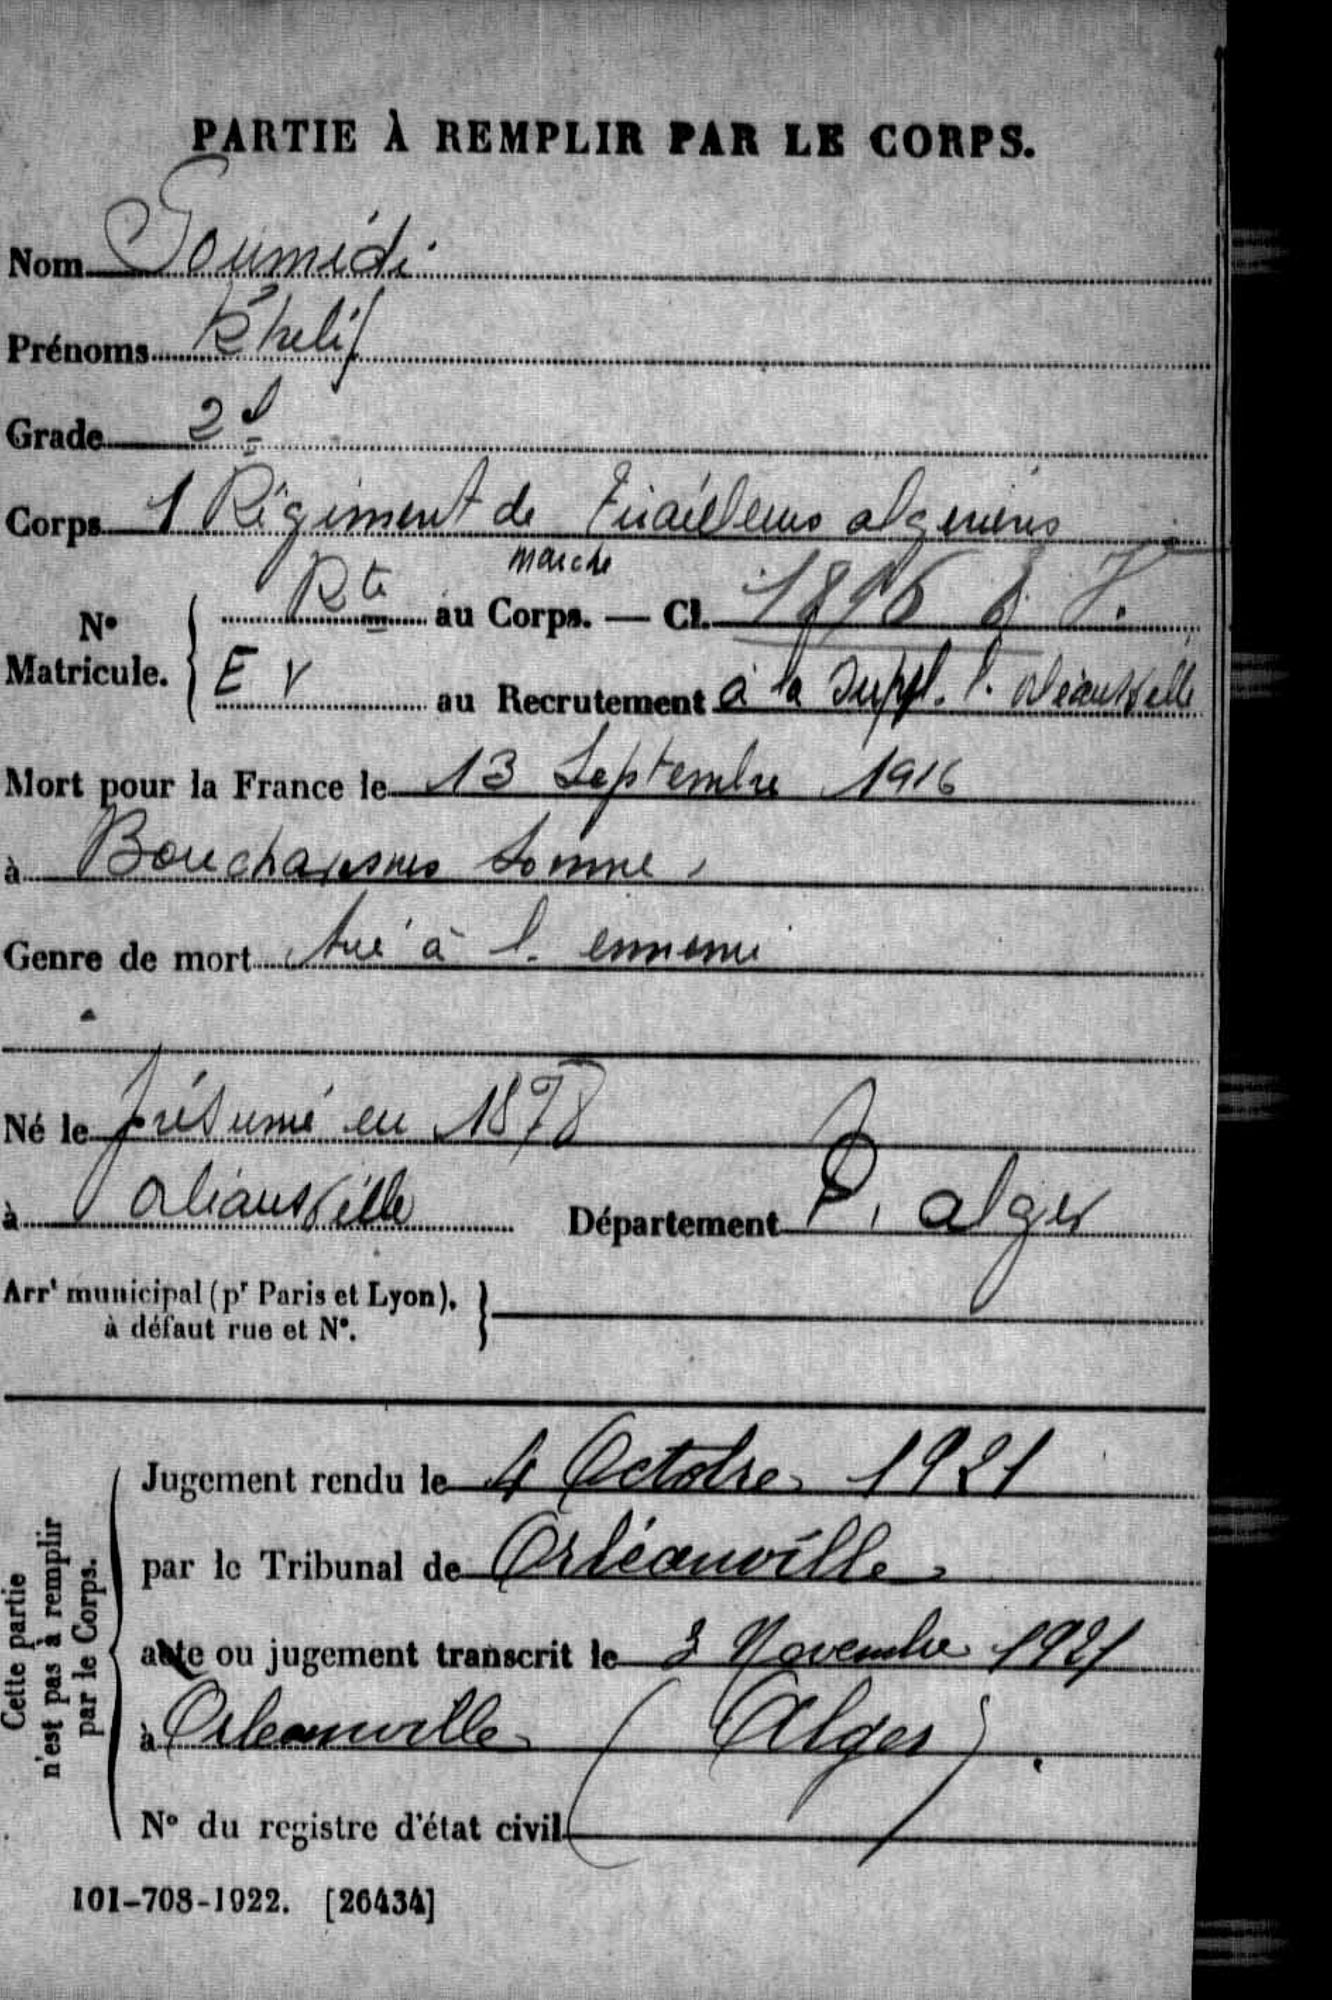 PARTIE À REMPLIR PAR LE CORPS.
Nom Goumidi
Prénoms Khelif
Grade 2e
Corps 1 Régiment de Tirailleurs algeriens
marche
N° Matricule. Rte au Corps. — Cl. 1896
E V au Recrutement à la Orléansville
Mort pour la France le 13 Septembre 1916
à Bouchavesnes Somme
Genre de mort tué à l. ennemi
Né le présumé en 1878
à Orléansville Département D. alger
Arrt municipal (pr Paris et Lyon),
à défaut rue et N°.
Cette partie
n'est pas à remplir
par le Corps.
Jugement rendu le 4 Octobre 1921
par le Tribunal de Orléanville
acte ou jugement transcrit le 3 Novembre 1921
à Orleanville (Alger).
N° du registre d'état civil
101-708-1922. [26434]